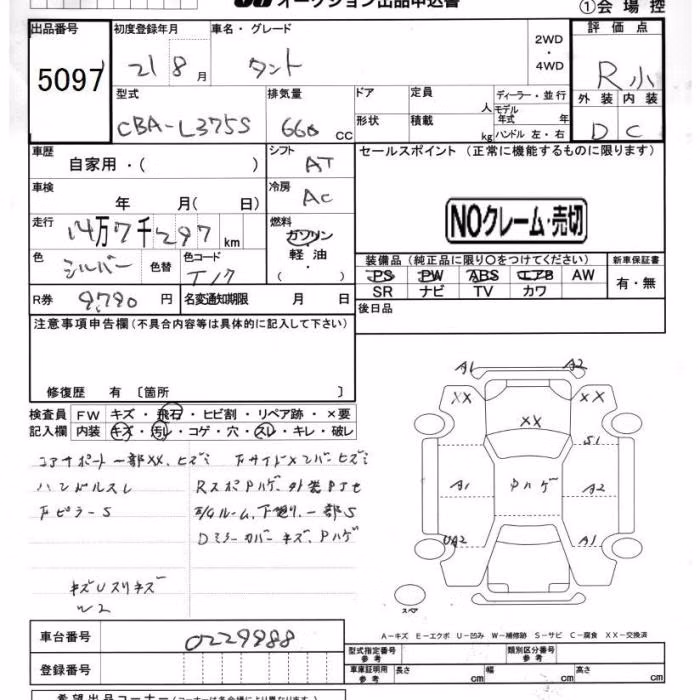 オークション出品申込書
①会場控
出品番号 初度登録年月 車名・グレード 評価点
5097 21 8月 タント 2WD・4WD R小
型式 排気量 ドア 定員 人 ディーラー・並行 外装 内装
CBA-L375S 660 CC 形状 積載 kg モデル年式 年 ハンドル 左・右 D C
車歴 自家用・( ) シフト AT セールスポイント (正常に機能するものに限ります)
車検 年 月( 日) 冷房 AC
NOクレーム・売切
走行 14万7千297km 燃料 ガソリン・軽油・( )
色 シルバー 色替 色コード T17
装備品(純正品に限り○をつけてください) 新車保証書
PS PW ABS エアB AW 有・無
SR ナビ TV カワ
R券 9790円 名変通知期限 月 日 後日品
注意事項申告欄(不具合内容等は具体的に記入して下さい)
修復歴 有 〔箇所 〕
検査員 FW キズ・飛石・ヒビ割・リペア跡・×要
記入欄 内装 キズ・汚レ・コゲ・穴・スレ・キレ・破レ
コアサポート一部XX、ヒズミ
ハンドルスレ
左ピラーS
キズUスリキズ
W2
左サイドメンバーヒズミ
RスポPハゲ、外装PJセ
E/Gルーム、下廻り、一部S
DミラーカバーキズPハゲ
A1 A2
XX XX
XX
S1
A1 Pハゲ A2
UA2 A1
スペア
A-キズ E-エクボ U-凹み W-補修跡 S-サビ C-腐食 XX-交換済
車台番号 0229988
型式指定番号 参考 類別区分番号 参考
登録番号 車庫証明用 参考 長さ cm 幅 cm 高さ cm
希望出品コーナー